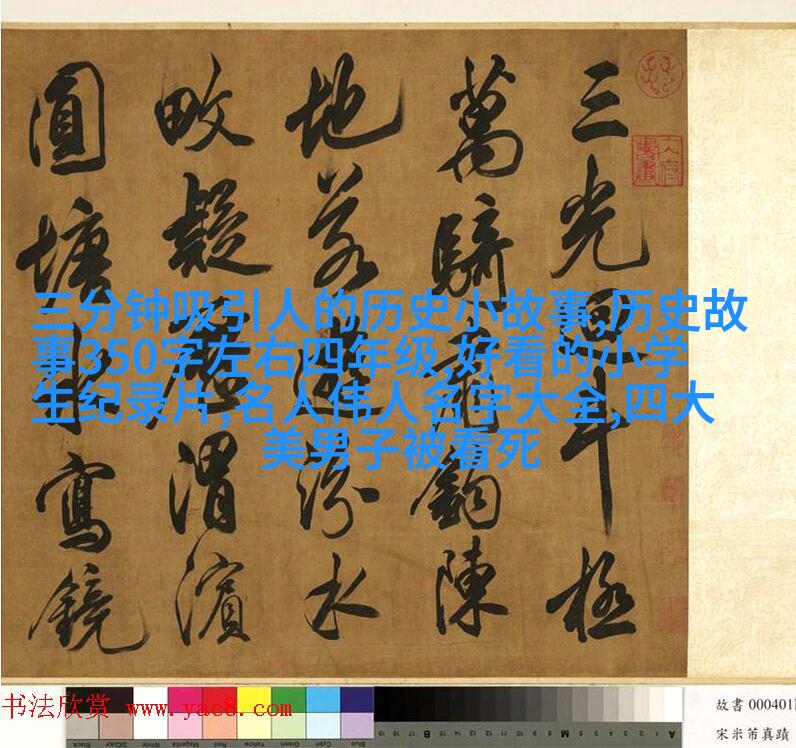 三光迴斗極
萬騎肅鉤陳
地若遊汾水
畋疑歷渭濱
圓塘冰寫鏡
三分钟吸引人的历史小故事,历史故
事350字左右四年级,好看的小学
生纪录片,名人伟人名字大全,四大
美男子被看死
书法欣赏 www.yac8.com
故書 000401
宋米芾真蹟